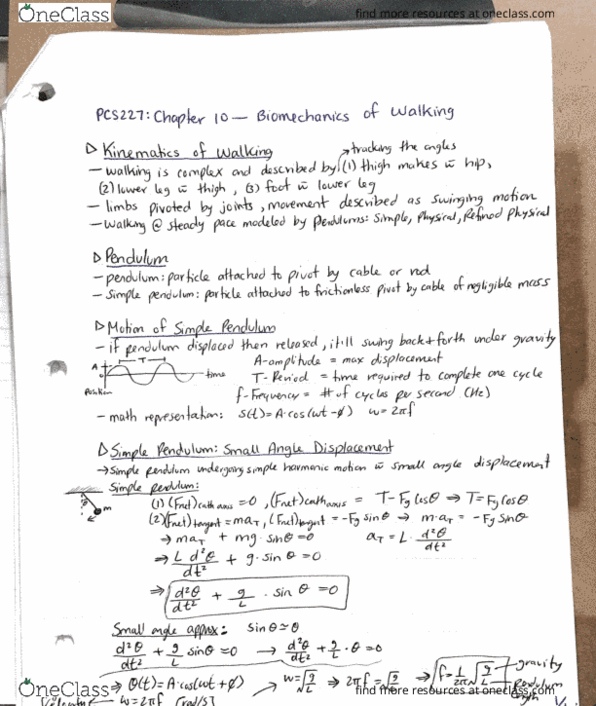 OneClass
find more resources at oneclass.com
PCS227: Chapter 10 — Biomechanics of Walking
▷ Kinematics of Walking
→ tracking the angles
— walking is complex and described by: (1) thigh makes w̄ hip,
(2) lower leg w̄ thigh, (3) foot w̄ lower leg
— limbs pivoted by joints, movement described as swinging motion
— walking @ steady pace modeled by pendulums: Simple, Physical, Refined Physical
▷ Pendulum
— pendulum: particle attached to pivot by cable or rod
— simple pendulum: particle attached to frictionless pivot by cable of negligible mass
▷ Motion of Simple Pendulum
— if pendulum displaced then released, it'll swing back+forth under gravity
A T time
Position
A-amplitude = max displacement
T-Period = time required to complete one cycle
f-Frequency = # of cycles per second (Hz)
— math representation: s(t)=A·cos(ωt-φ) ω=2πf
▷ Simple Pendulum: Small Angle Displacement
→ Simple pendulum undergoing simple harmonic motion w̄ small angle displacement
Simple pendulum:
m
(1) (Fnet) =0, (Fnet) = T-Fg cosθ ⇒ T=Fg cosθ
(2) (Fnet)tangent = maT, (Fnet)tangent = -Fg sinθ → m·aT = -Fg sinθ
→ maT + mg·sinθ=0
aT = L· d²θ/dt²
⇒ L d²θ/dt² + g·sinθ=0
⇒ d²θ/dt² + g/L · sin θ =0
Small angle approx: sinθ≃θ
d²θ/dt² + g/L sinθ=0 → d²θ/dt² + g/L · θ=0
⇒ θ(t)=A·cos(ωt+φ) → ω=√g/L ⇒ 2πf=√g/L ⇒ f=1/2π √g/L gravity
pendulum length
ω=2πf [rad/s]
OneClass
find more resources at oneclass.com